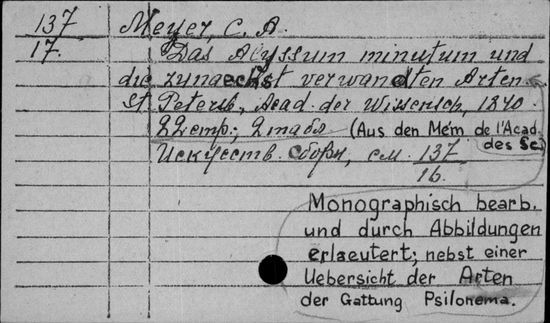 137 Meyer, C. A.
17. Das Alyssum minutum und
die zunaechst verwandten Arten.
St. Petersb., Acad. der Wissensch, 1840.
22 стр.; 2 табл (Aus den Mém de l'Acad.
des Sc.)
Искусств. сборн, см. 137
16.
Monographisch bearb.
und durch Abbildungen
erlaeutert; nebst einer
Uebersicht der Arten
der Gattung Psilonema.